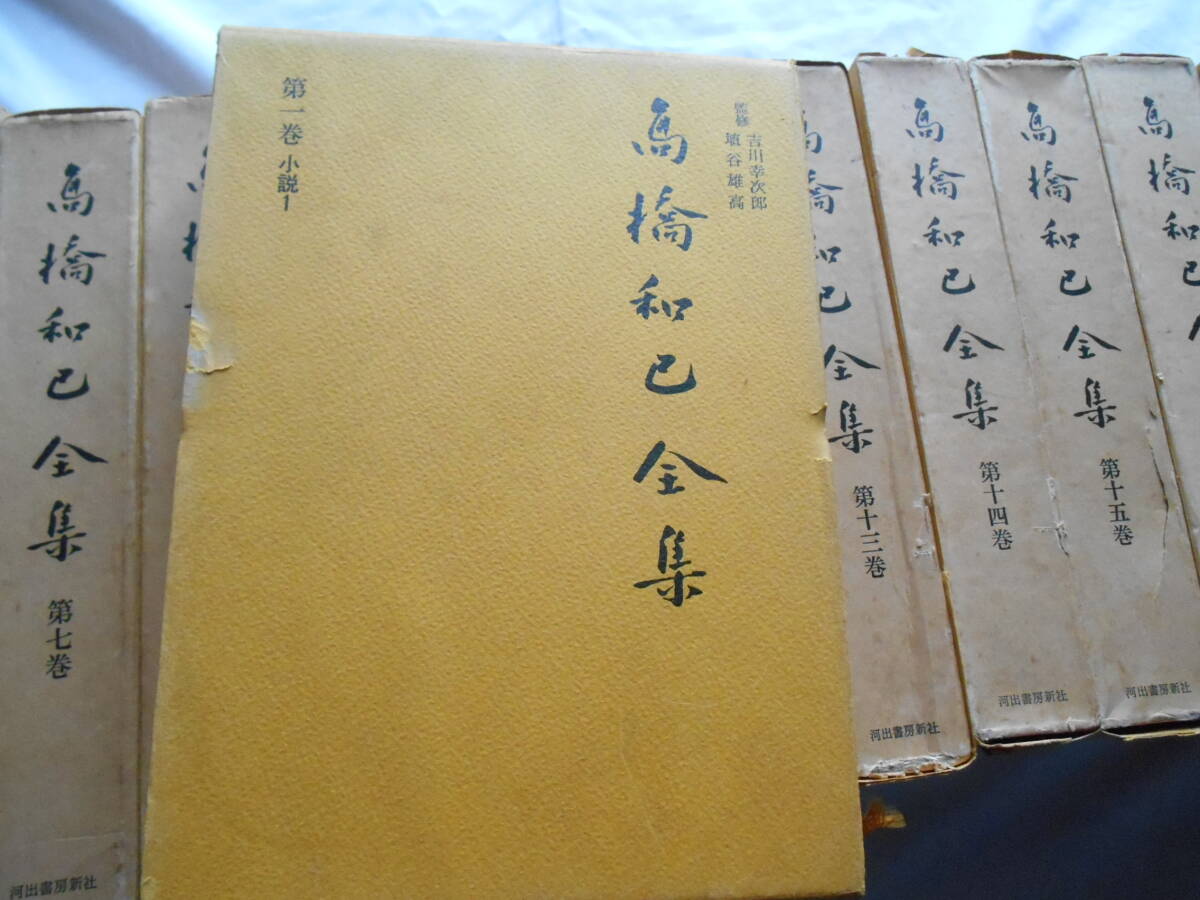 監修 吉川幸次郎
埴谷雄高
高橋和巳全集
第一巻 小説1
高橋和巳全集 第七巻
河出書房新社
高橋和巳全集 第十三巻
河出書房新社
高橋和巳全集 第十四巻
河出書房新社
高橋和巳全集 第十五巻
河出書房新社
高橋和巳